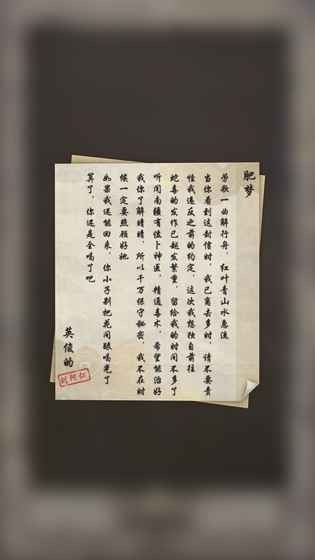 肥梦
劳歌一曲解行舟，红叶青山水急流
当你看到这封信时，我已离去多时，请不要责
怪我违反之前的约定，这次我想独自前往
蛇毒的发作已越发繁重，留给我的时间不多了
听闻南疆有位卜神医，精通毒术，希望能治好
我你了解晴晴，所以千万保守秘密，我不在时
候一定要照顾好她
如果我还能回来，你小子别把花间眠喝光了
算了，你还是全喝了吧
英俊的